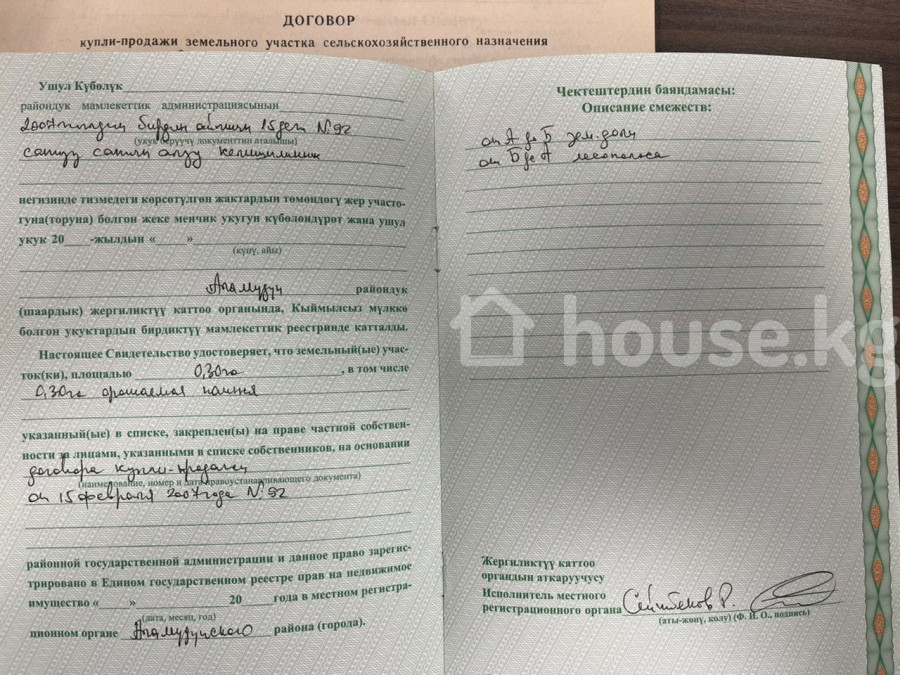 ДОГОВОР
купли-продажи земельного участка сельскохозяйственного назначения
Ушул Күбөлүк
райондук мамлекеттик администрациясынын
2007-жылдын бирдин айынын 15дег №92
(укук берүүчү документтин аталышы)
сатуу сатып алуу келишиминин
негизинде тизмедеги көрсөтүлгөн жактардын төмөндөгү жер участо-
гуна(торуна) болгон жеке менчик укугун күбөлөндүрөт жана ушул
укук 20 -жылдын « »
(күнү, айы)
Аламүдүн райондук
(шаардык) жергиликтүү каттоо органында, Кыймылсыз мүлккө
болгон укуктардын бирдиктүү мамлекеттик реестринде катталды.
Настоящее Свидетельство удостоверяет, что земельный(ые) учас-
ток(ки), площадью 0,30га , в том числе
0,30га орошаемая пашня
указанный(ые) в списке, закреплен(ы) на праве частной собствен-
ности за лицами, указанными в списке собственников, на основании
договора купли-продажи
(наименование, номер и дата правоустанавливающего документа)
от 15 февраля 2007 года №92
районной государственной администрации и данное право зарегис-
трировано в Едином государственном реестре прав на недвижимое
имущество « » 20 года в местном регистра-
(дата, месяц, год)
ционном органе Аламудунского района (города).
Чектештердин баяндамасы:
Описание смежеств:
от А до Б зем. доли
от Б до А лесополоса
house.kg
Жергиликтүү каттоо
органдын аткаруучусу
Исполнитель местного
регистрационного органа Сейтбеков Р.
(аты-жөнү, колу) (Ф. И. О., подпись)